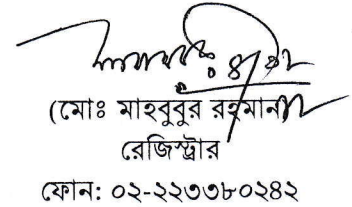 (মোঃ মাহবুবুর রহমান)
রেজিস্ট্রার
ফোন: ০২-২২৩৩৮০২৪২